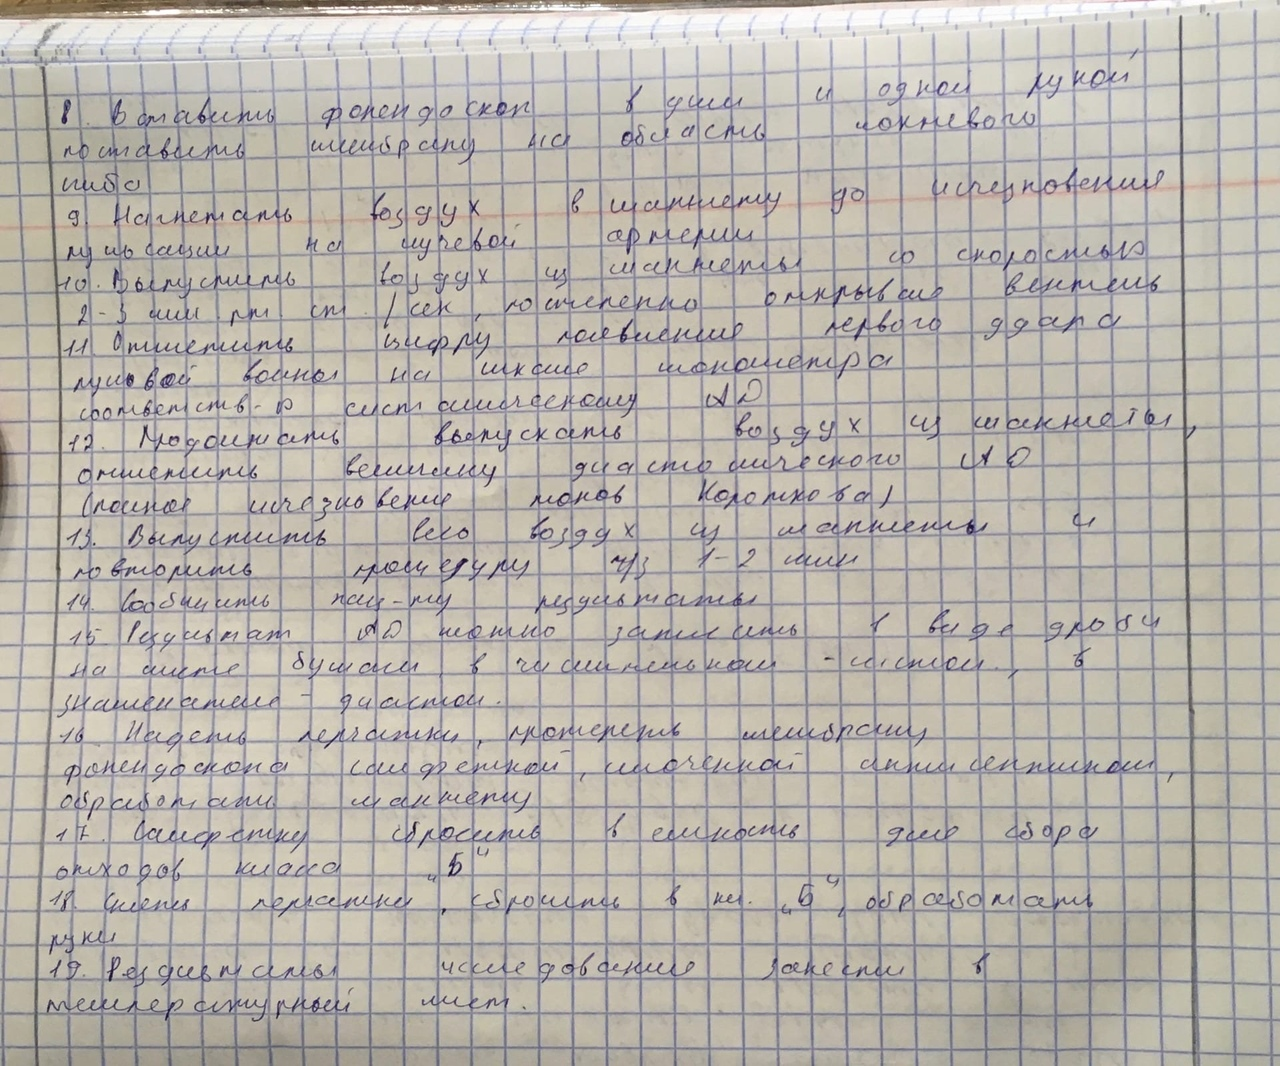 8. Вставить фонендоскоп в уши и одной рукой
поставить мембрану на область локтевого
сгиба
9. Нагнетать воздух в манжету до исчезновения
пульсации на лучевой артерии
10. Выпустить воздух из манжеты со скоростью
2-3 мм рт ст. /сек, постепенно открывая вентиль
11 Отметить цифру появления первого удара
пульсовой волны на шкале манометра
соответств-ю систолическому АД
12. Продолжать выпускать воздух из манжеты,
отметить величину диастолического АД
(полное исчезновение тонов Короткова)
13. Выпустить весь воздух из манжеты и
повторить процедуру ч/з 1-2 мин
14. Сообщить пац-ту результаты
15 Результат АД можно записать в виде дроби
на листе бумаги, в числительном - систол., в
знаменателе - диастол.
16. Надеть перчатки, протереть мембрану
фонендоскопа салфеткой, смоченной антисептиком,
обработать манжету
17. Салфетку сбросить в емкость для сбора
отходов класса „Б“
18. Снять перчатки, сбросить в кл. „Б“, обработать
руки
19. Результаты исследования занести в
температурный лист.